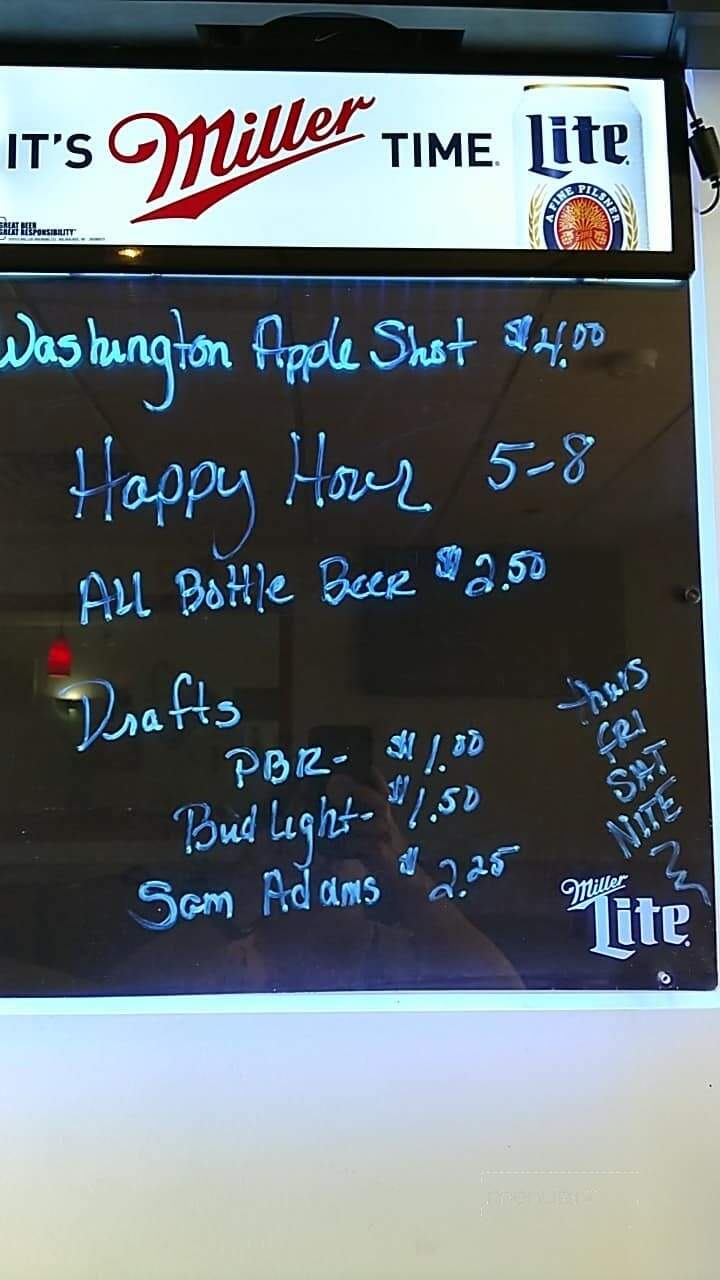 IT'S Miller TIME. Lite
A FINE PILSNER
GREAT BEER
GREAT RESPONSIBILITY
Washington Apple Shot $4.00
Happy Hour 5-8
All Bottle Beer $2.50
Drafts
PBR- $1.00
Bud Light- $1.50
Sam Adams $2.25
Thurs
FRI
SAT
NITE
Miller
Lite